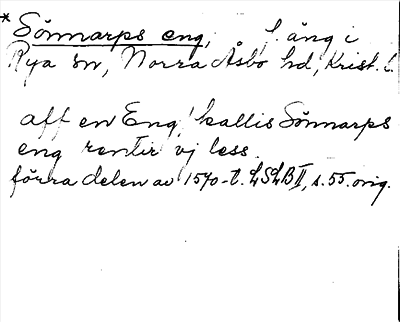 *Sönnarps eng, f. äng i
Rya sn, Norra Åsbo hd, Krist. l.
aff en Eng, kallis Sönnarps
eng rentir vj less.
förra delen av 1570-t. LSLB II, s. 55. orig.